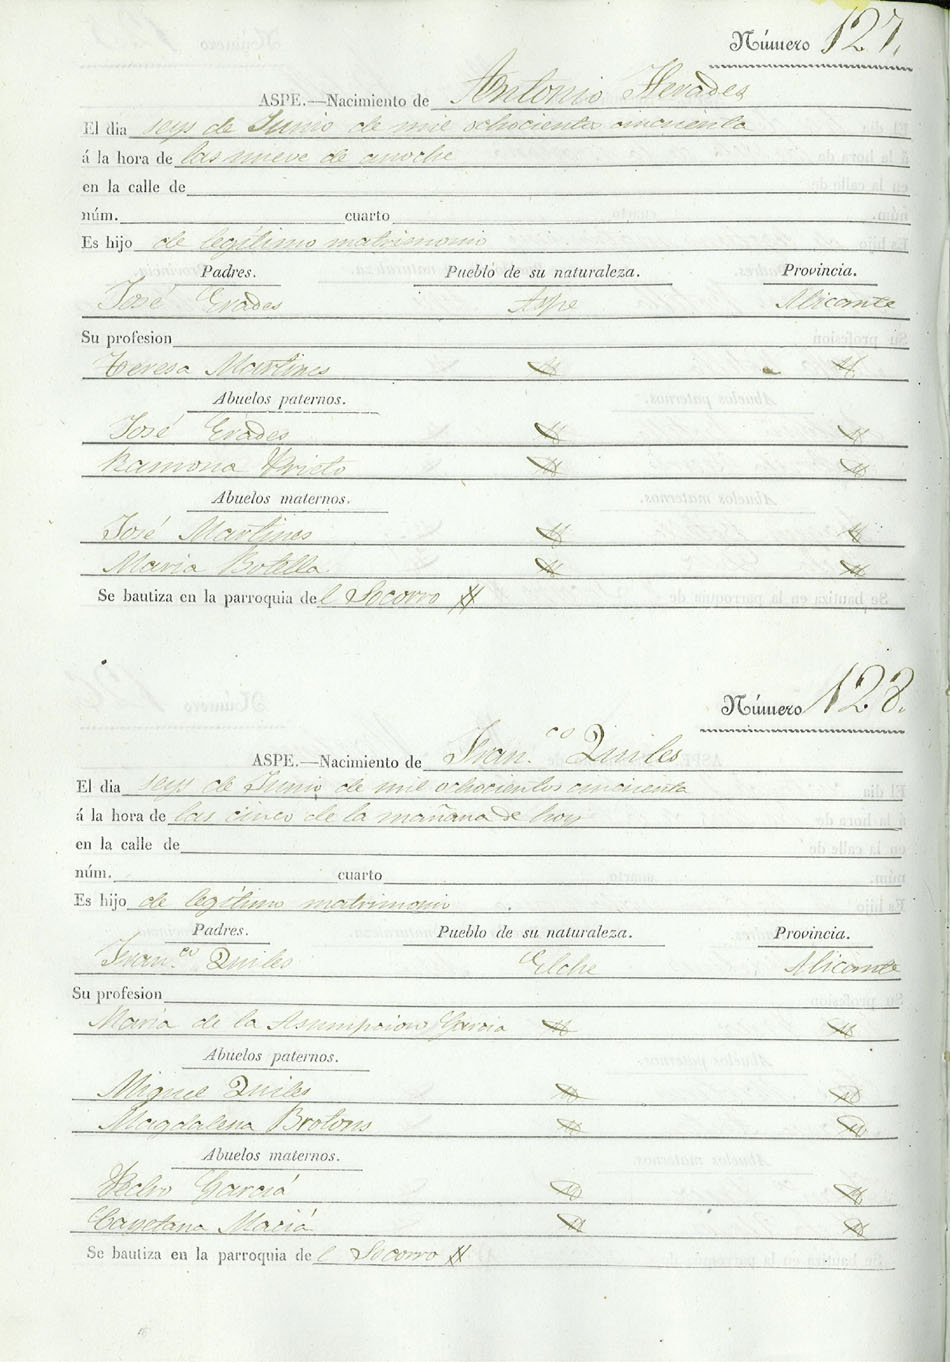 Número 127.
ASPE.—Nacimiento de Antonio Herades
El dia seys de Junio de mil ochocientos cincuenta
á la hora de las nueve de anoche
en la calle de
núm. cuarto
Es hijo de legítimo matrimonio
Padres. Pueblo de su naturaleza. Provincia.
José Erades Aspe Alicante
Su profesion
Teresa Martines
Abuelos paternos.
José Erades
Ramona Prieto
Abuelos maternos.
José Martines
Maria Botella
Se bautiza en la parroquia del Socorro
Número 128.
ASPE.—Nacimiento de Fran.co Quiles
El dia seys de Junio de mil ochocientos cincuenta
á la hora de las cinco de la mañana de hoy
en la calle de
núm. cuarto
Es hijo de legítimo matrimonio
Padres. Pueblo de su naturaleza. Provincia.
Fran.co Quiles Elche Alicante
Su profesion
Maria de la Asumpcion Garcia
Abuelos paternos.
Miguel Quiles
Magdalena Brotons
Abuelos maternos.
Pedro Garciá
Cayetana Maciá
Se bautiza en la parroquia del Socorro